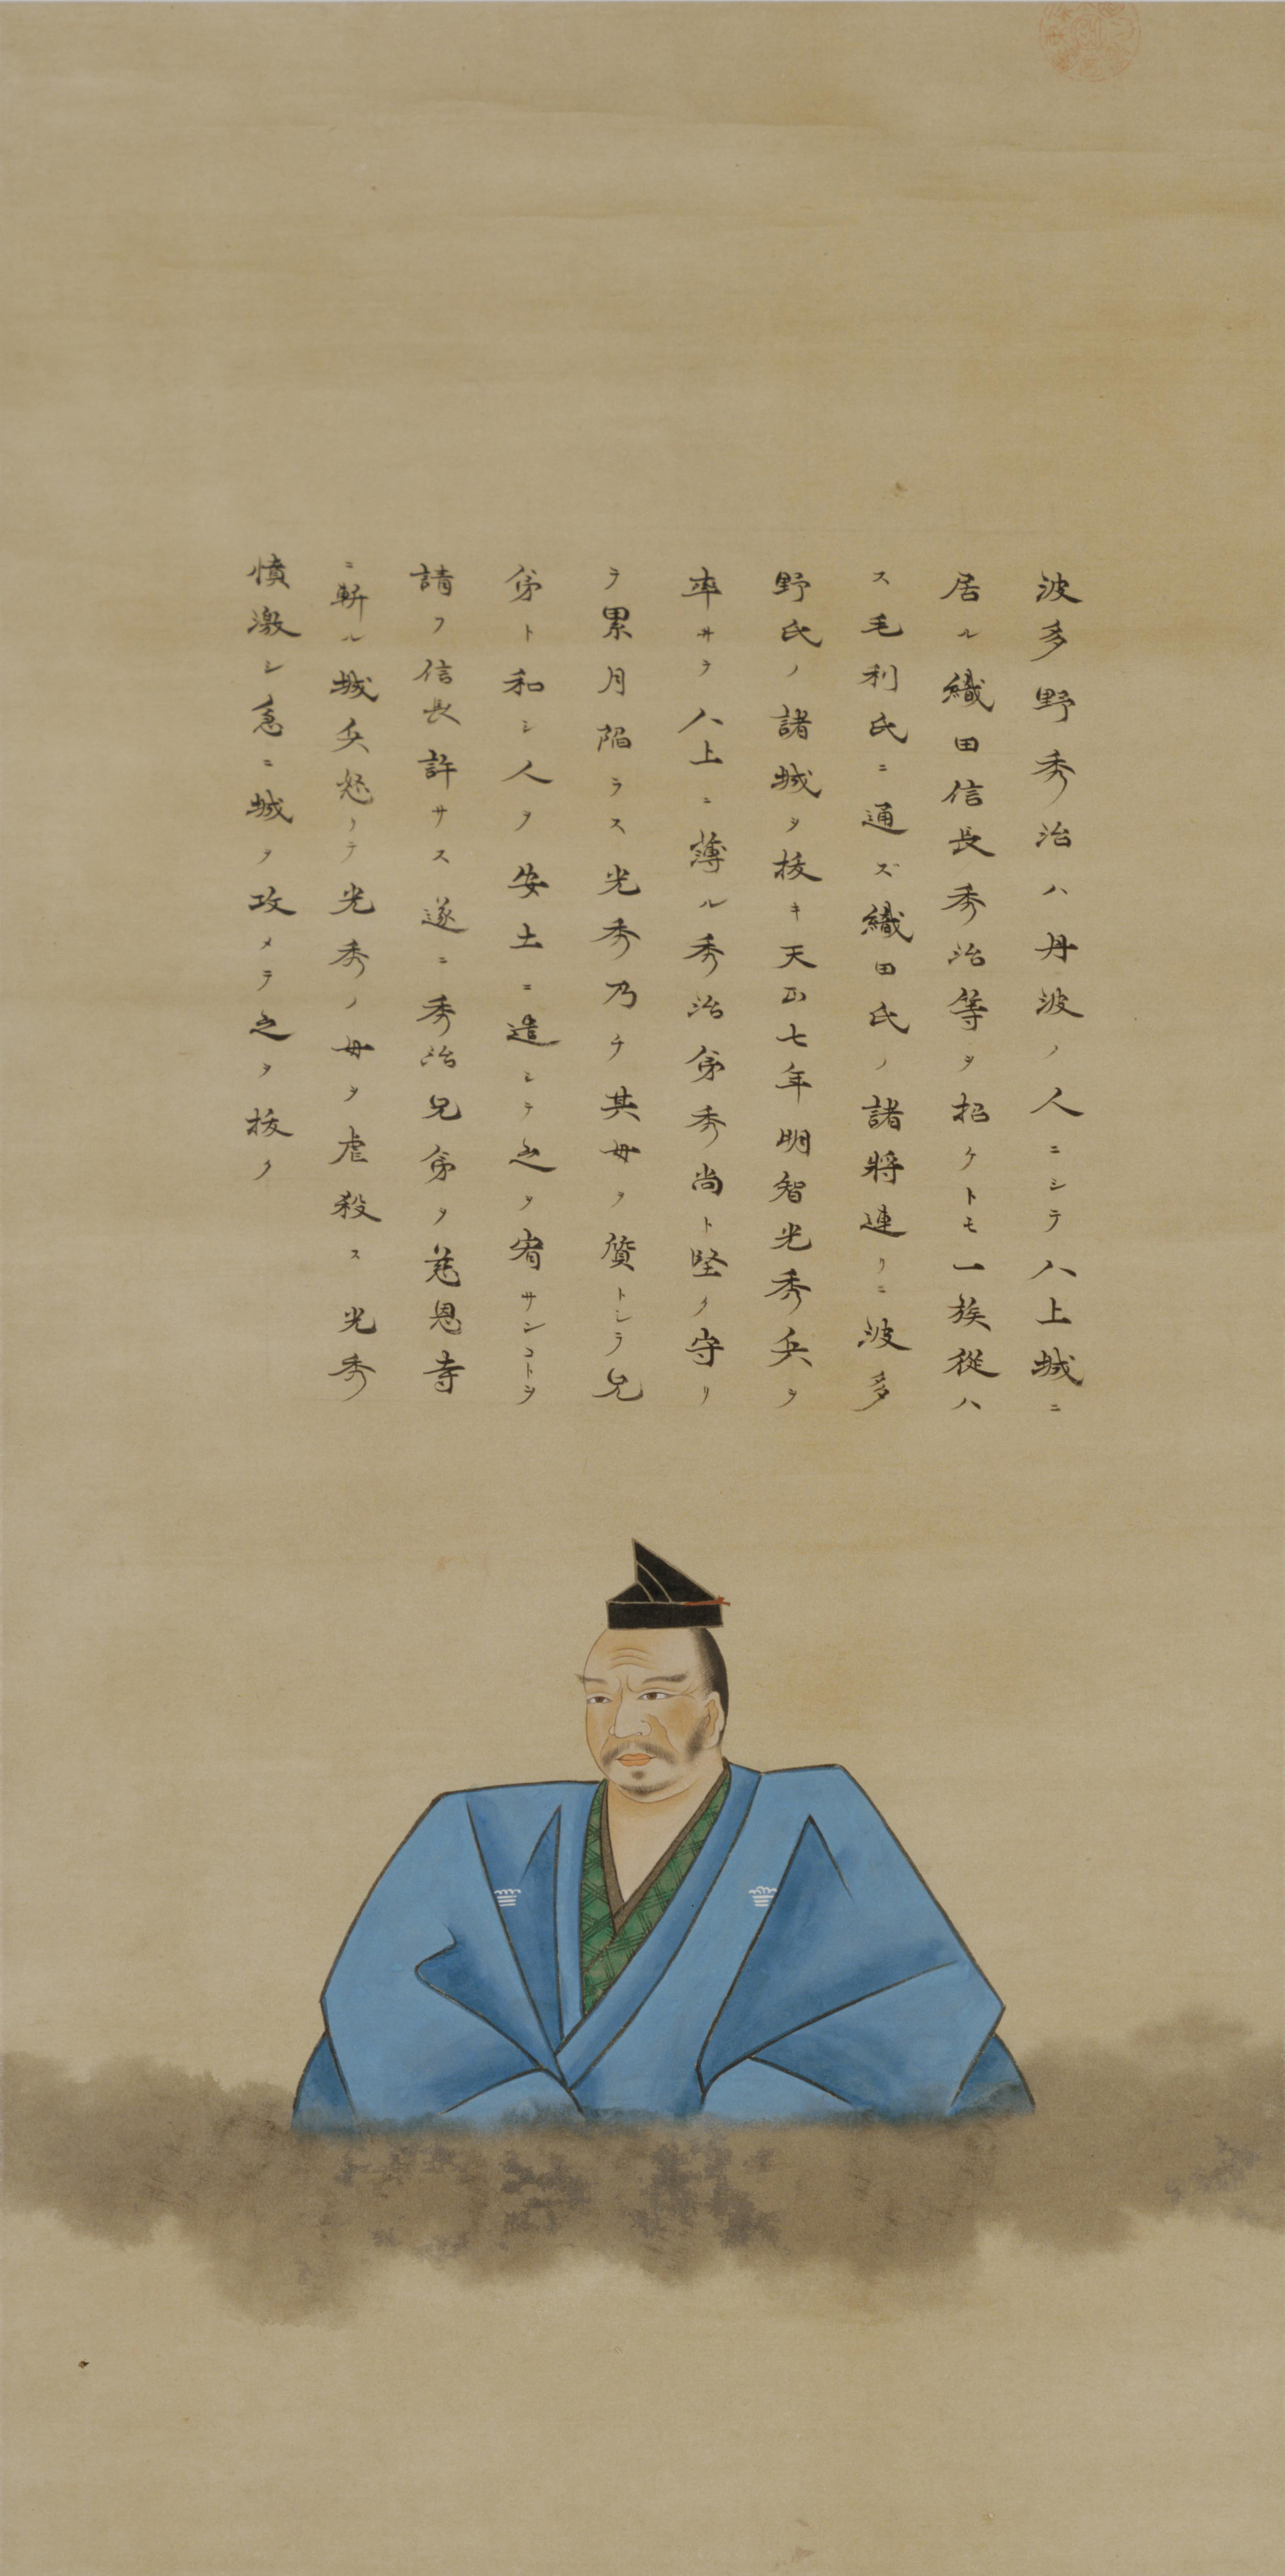 波多野秀治ハ丹波ノ人ニシテ八上城ニ
居ル織田信長秀治等ヲ招ケトモ一族從ハ
ス毛利氏ニ通ズ織田氏ノ諸將連リニ波多
野氏ノ諸城ヲ拔キ天正七年明智光秀兵ヲ
率井テ八上ニ薄ル秀治弟秀尚ト堅ク守リ
テ累月陥ラス光秀乃チ其母ヲ質トシテ兄
弟ト和シ人ヲ安土ニ造シテ之ヲ宥サンコトヲ
請フ信長許サス遂ニ秀治兄弟ヲ慈恩寺
ニ斬ル城兵怒リテ光秀ノ母ヲ虐殺ス光秀
憤激シ急ニ城ヲ攻メテ之ヲ拔ク